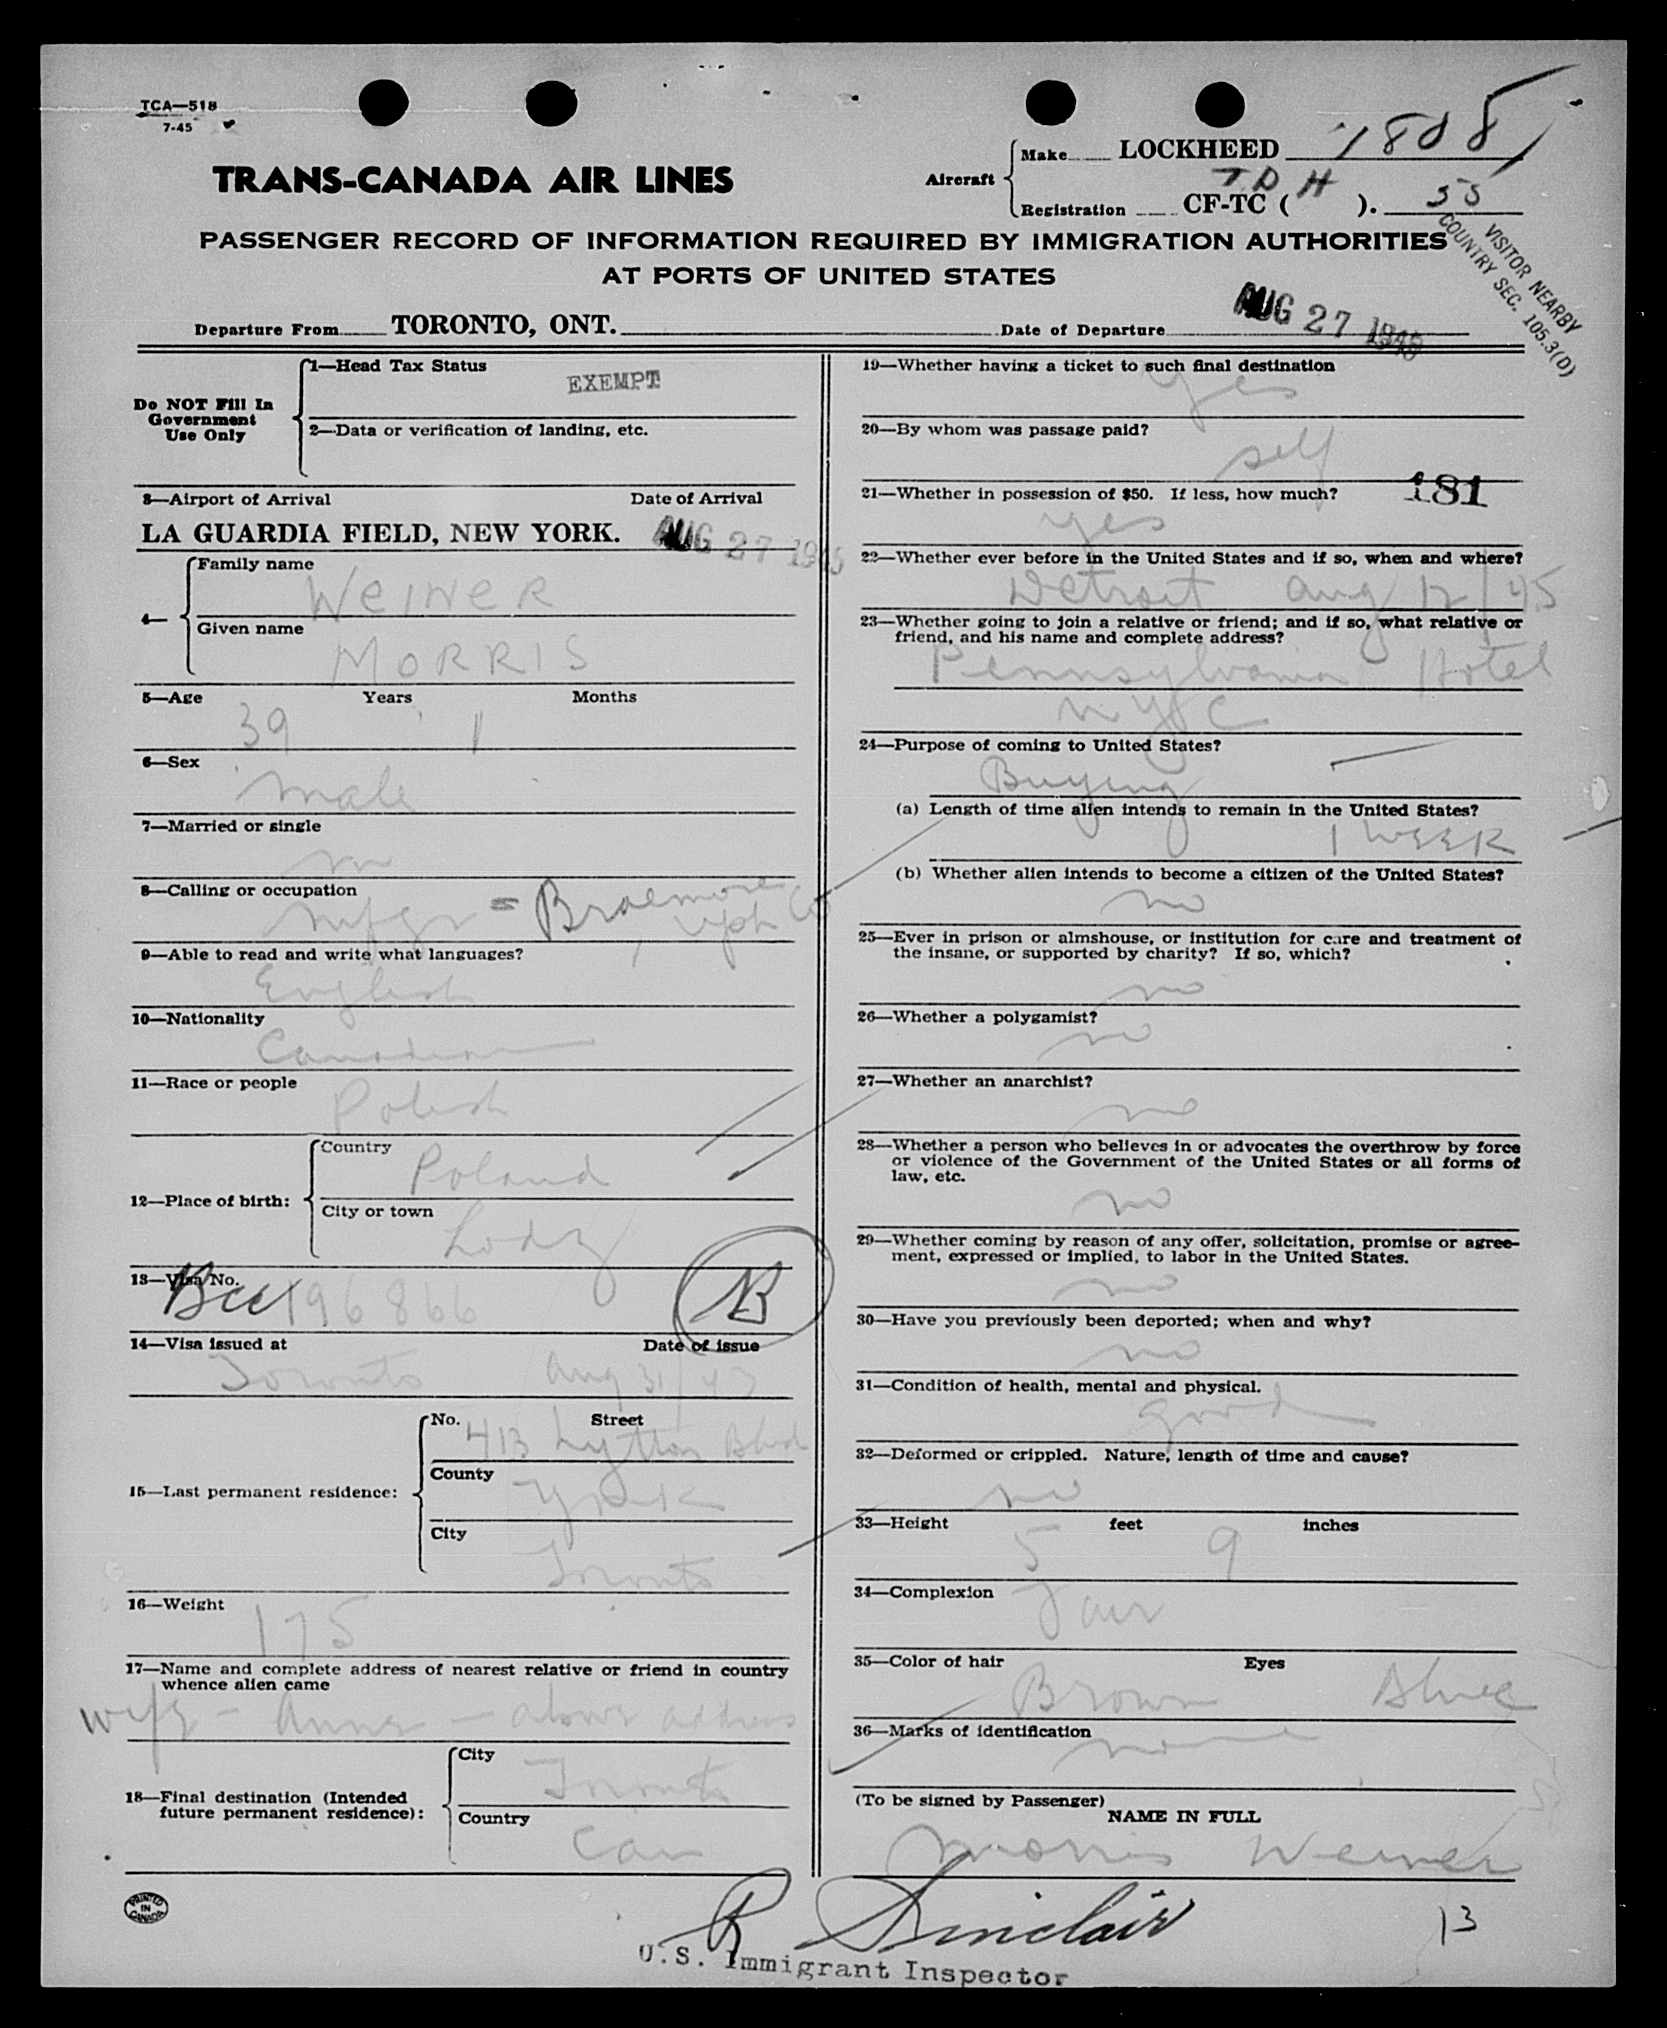 TCA—518
7-45
TRANS-CANADA AIR LINES
Aircraft
Make LOCKHEED 1808
Registration CF-TC ( TDH ). 55
VISITOR NEARBY
COUNTRY SEC. 105.3(D)
PASSENGER RECORD OF INFORMATION REQUIRED BY IMMIGRATION AUTHORITIES
AT PORTS OF UNITED STATES
Departure From TORONTO, ONT. Date of Departure AUG 27 1945
Do NOT Fill In
Government
Use Only
1—Head Tax Status
EXEMPT
2—Data or verification of landing, etc.
3—Airport of Arrival Date of Arrival
LA GUARDIA FIELD, NEW YORK. AUG 27 1945
4—
Family name
WEINER
Given name
MORRIS
5—Age Years Months
39 11
6—Sex
male
7—Married or single
m
8—Calling or occupation
mfgr = Braemore
uph Co
9—Able to read and write what languages?
English
10—Nationality
Canadian
11—Race or people
Polish
12—Place of birth:
Country
Poland
City or town
Lodz
13—Visa No.
Bcc 196866
14—Visa issued at Date of issue
Toronto Aug 31/43
15—Last permanent residence:
No. Street
413 Lytton Blvd
County
York
City
Toronto
16—Weight
175
17—Name and complete address of nearest relative or friend in country
whence alien came
wife - Anne - above address
18—Final destination (Intended
future permanent residence):
City
Toronto
Country
Can
19—Whether having a ticket to such final destination
yes
20—By whom was passage paid?
self
21—Whether in possession of $50. If less, how much? 181
yes
22—Whether ever before in the United States and if so, when and where?
Detroit Aug 12/45
23—Whether going to join a relative or friend; and if so, what relative or
friend, and his name and complete address?
Pennsylvania Hotel
NYC
24—Purpose of coming to United States?
Buying
(a) Length of time alien intends to remain in the United States?
1 WEEK
(b) Whether alien intends to become a citizen of the United States?
no
25—Ever in prison or almshouse, or institution for care and treatment of
the insane, or supported by charity? If so, which?
no
26—Whether a polygamist?
no
27—Whether an anarchist?
no
28—Whether a person who believes in or advocates the overthrow by force
or violence of the Government of the United States or all forms of
law, etc.
no
29—Whether coming by reason of any offer, solicitation, promise or agree-
ment, expressed or implied, to labor in the United States.
no
30—Have you previously been deported; when and why?
no
31—Condition of health, mental and physical.
good
32—Deformed or crippled. Nature, length of time and cause?
no
33—Height feet inches
5 9
34—Complexion
Fair
35—Color of hair Eyes
Brown Blue
36—Marks of identification
none
(To be signed by Passenger)
NAME IN FULL
Morris Weiner
PRINTED
IN
CANADA
R Sinclair
U.S. Immigrant Inspector
13